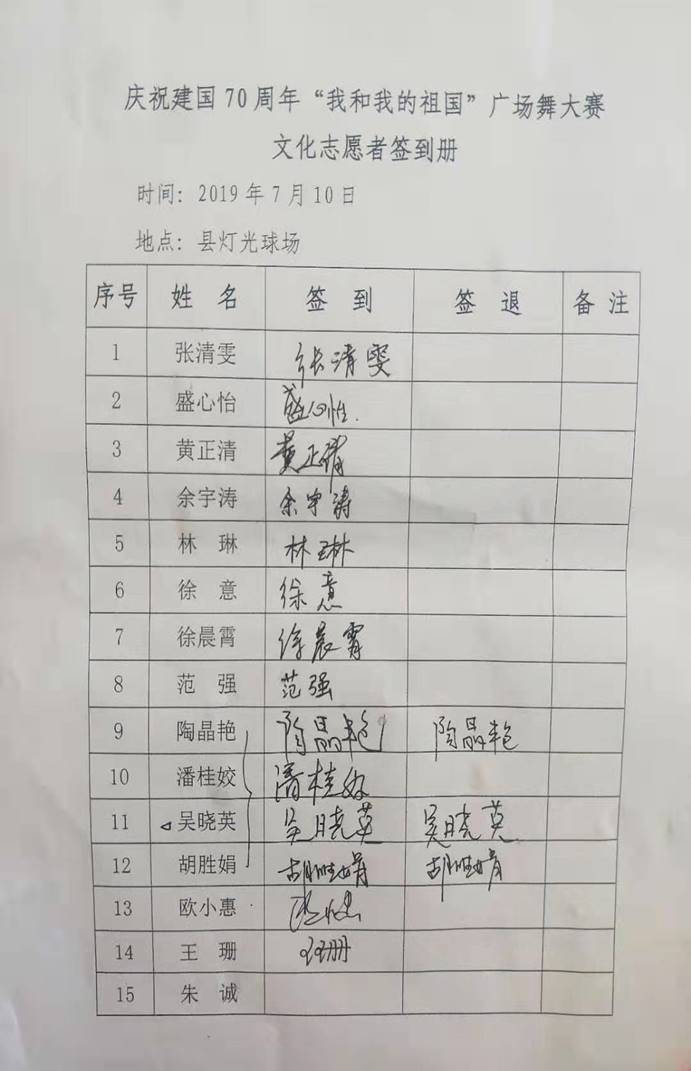 庆祝建国70周年“我和我的祖国”广场舞大赛
文化志愿者签到册
时间：2019年7月10日
地点：县灯光球场
序号 姓 名 签 到 签 退 备 注
1 张清雯 张清雯
2 盛心怡 盛心怡.
3 黄正清 黄正清
4 余宇涛 余宇涛
5 林 琳 林琳
6 徐 意 徐意
7 徐晨霄 徐晨霄
8 范 强 范强
9 陶晶艳 陶晶艳 陶晶艳
10 潘桂姣 潘桂姣
11 吴晓英 吴晓英 吴晓英
12 胡胜娟 胡胜娟 胡胜娟
13 欧小惠
14 王 珊 王珊
15 朱 诚